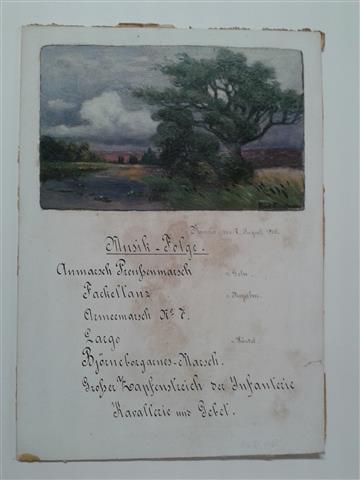 August
Musik-Folge.
Anmarsch Preußenmarsch v. Goln.
Fackeltanz v.
Armeemarsch No 7.
Largo v. Händel.
Björneborgarnes-Marsch.
Großer Zapfenstreich der Infanterie
Kavallerie und Gebet.